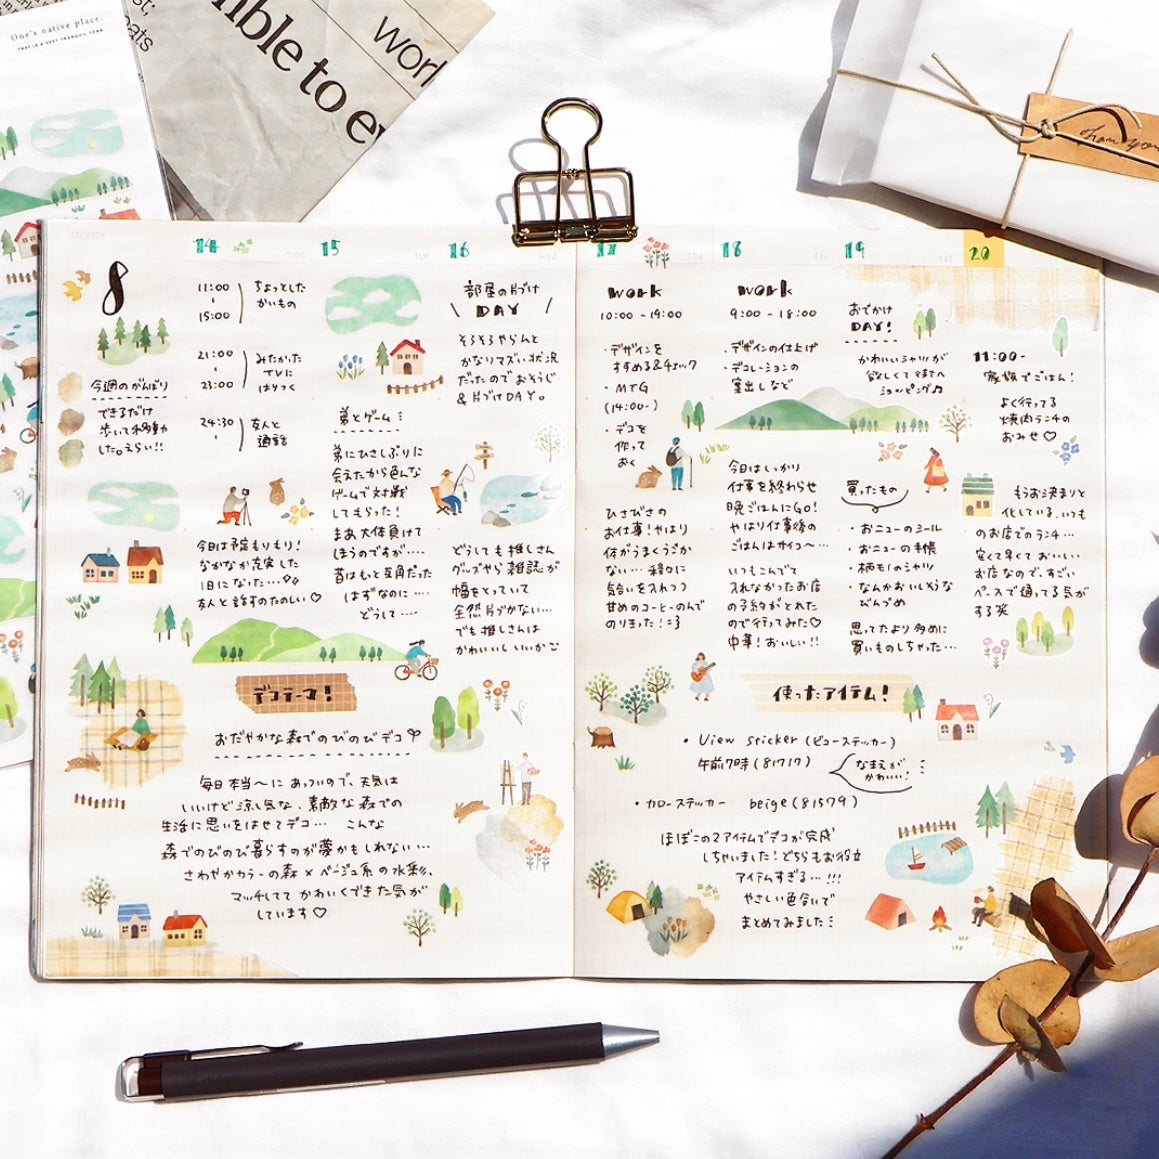 One's native place.
nble to e
worl
eats
Thank you
MONTH
8
今週のがんばり
できるだけ
歩いて移動
した。えらい!!
14
mon
11:00
15:00
ちょっとした
かいもの
21:00
23:00
みたかった
TVに
はりつく
24:30
友人と
通話
今日は予定もりもり!
なかなか充実した
1日になった…
友人と話すのたのしい♡
15
tue
弟とゲーム
弟にひさしぶりに
会えたから色んな
ゲームで対戦
してもらった!
まあ大体負けて
ほうのですが……
昔はもと互角だった
はずなのに……
どうして……
16
wed
部屋の片づけ
\ DAY /
そろそろやらんと
かなりマズい状況
だったのでおそうじ
&片づけDAY。
どうしても推しさん
グッズやら雑誌が
幅をとっていて
全然片づかない…
でも推しさんは
かわいいしいいか
デコテーマ!
おだやかな森でのびのびデコ
毎日本当〜にあついので、天気は
いいけど涼し気な、素敵な森での
生活に思いをはせてデコ… こんな
森でのびのび暮らすのが夢かもしれない…
さわやかカラーの森×ベージュ系の水彩、
マッチしてて かわいくできた気が
しています♡
17
thu
work
10:00 - 19:00
・デザインを
すすめる&チェック
・MTG
(14:00-)
・デコを
作って
おく
ひさびさの
お仕事!やはり
体がうまくうごか
ない…
甘めのコーヒーのんで
のりきった!
18
fri
work
9:00 - 18:00
・デザインの仕上げ
・デコレーションの
案出しなど
今日はしっかり
仕事を終わらせ
晩ごはんにGO!
やはり仕事後の
ごはんはサイコ〜…
いつもこんでて
入れなかったお店
の予約がとれた
ので行ってみた♡
中華!おいしい!!
19
sat
おでかけ
DAY!
かわいいシャツが
欲しくて街へ
ショッピング♫
買ったもの
・おニューのシール
・おニューの手帳
・柄もののシャツ
・なんかおいしそうな
びんづめ
思ってたより多めに
買いものしちゃった…
20
11:00-
家族でごはん!
よく行ってる
焼肉ランチの
おみせ♡
もうお決まりと
化している、いつも
のお店でのランチ…
安くて早くておいしい
お店なので、すごい
ペースで通ってる気が
する笑
使ったアイテム!
・View sticker (ビューステッカー)
午前7時(81717)
なまえが
かわいい!
・カローステッカー beige(81579)
ほぼこの2アイテムでデコが完成
しちゃいました!どちらもお役立
アイテムすぎる…!!!
やさしい色合いで
まとめてみました